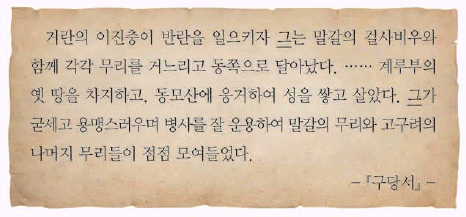 거란의 이진충이 반란을 일으키자 그는 말갈의 걸사비우와
함께 각각 무리를 거느리고 동쪽으로 달아났다. …… 계루부의
옛 땅을 차지하고, 동모산에 웅거하여 성을 쌓고 살았다. 그가
굳세고 용맹스러우며 병사를 잘 운용하여 말갈의 무리와 고구려의
나머지 무리들이 점점 모여들었다.
-『구당서』-